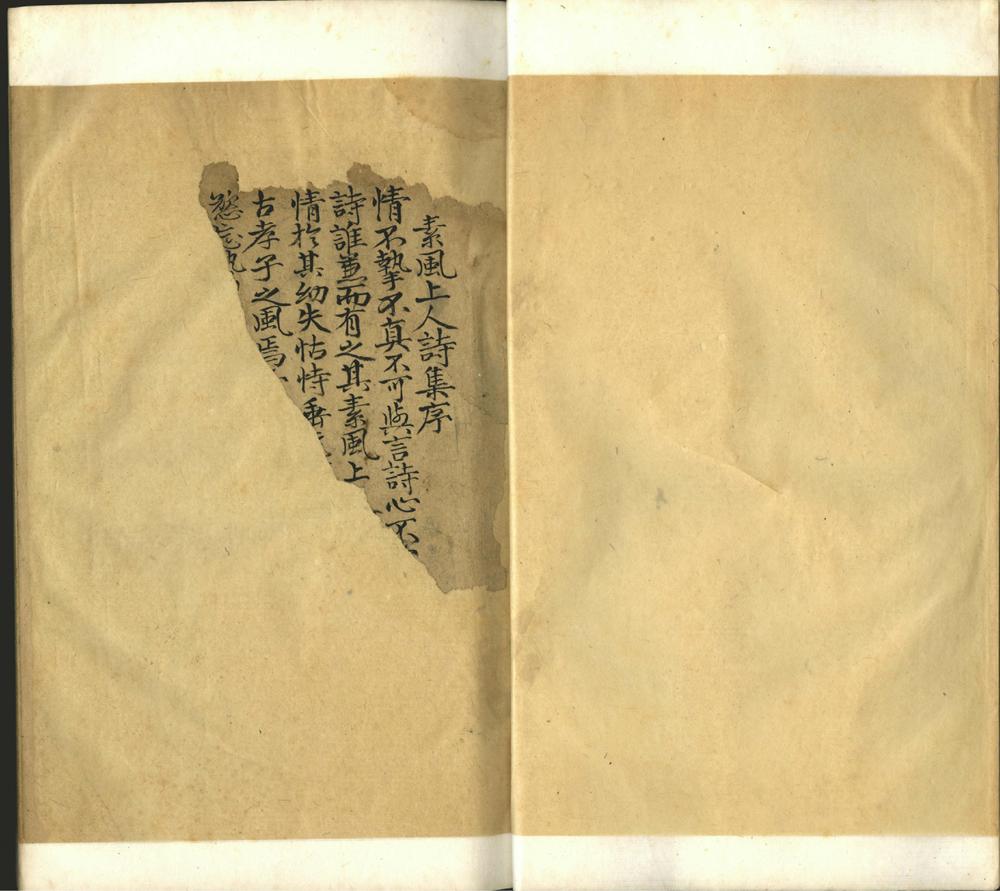 素風上人詩集序
情不摯不真不可與言詩心不
詩誰兼而有之其素風上
情於其幼失怙恃每
古孝子之風焉
慾忘